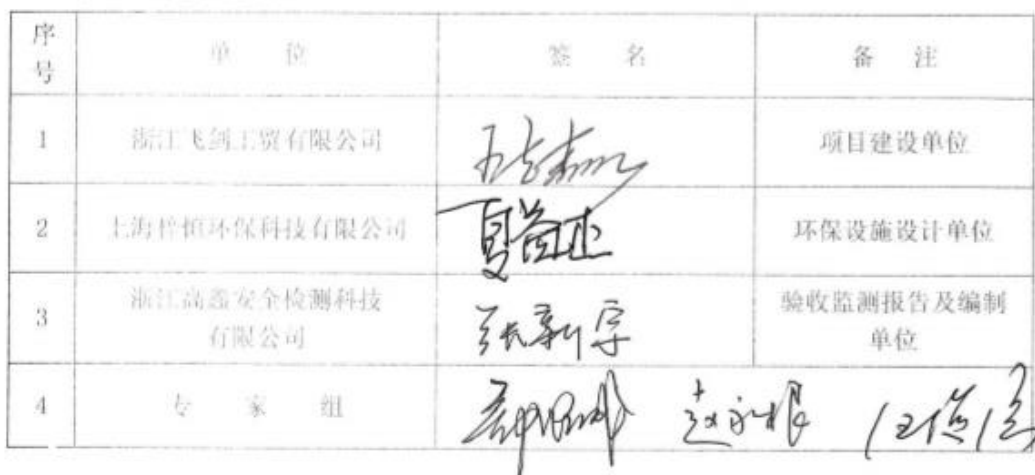 序号 单位 签名 备注
1 浙江飞剑工贸有限公司 项目建设单位
2 上海梓恒环保科技有限公司 夏益正 环保设施设计单位
3 浙江高鑫安全检测科技 张新宇 验收监测报告及编制
有限公司 单位
4 专家组 赵永根